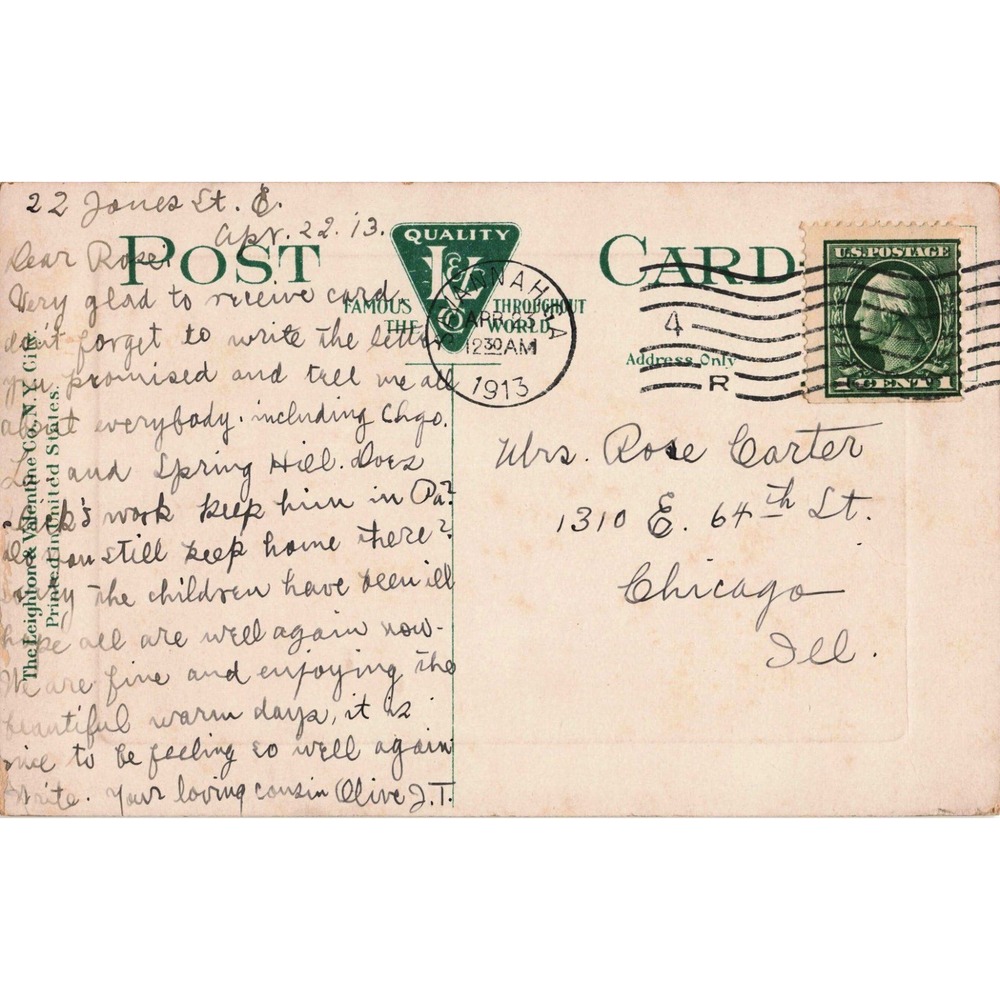 22 Jones St. E.
Apr. 22. '13.
Dear Rose:
Very glad to receive card,
don't forget to write the letter
you promised and tell me all
about everybody. including Chgo.
and Spring Hill. Does
work keep him in Pa?
Do you still keep home there?
Sorry the children have been ill
hope all are well again now-
We are fine and enjoying the
beautiful warm days, it is
nice to be feeling so well again
Write. Your loving cousin Olive J.T.
POST CARD
QUALITY
L&V Co
FAMOUS THROUGHOUT
THE WORLD
SAVANNAH, GA
APR 23
12 30 AM
1913
4
R
Address Only
U.S. POSTAGE
1 CENT 1
Mrs. Rose Carter
1310 E. 64th St.
Chicago
Ill.
The Leighton & Valentine Co. N.Y. City.
Printed in United States.